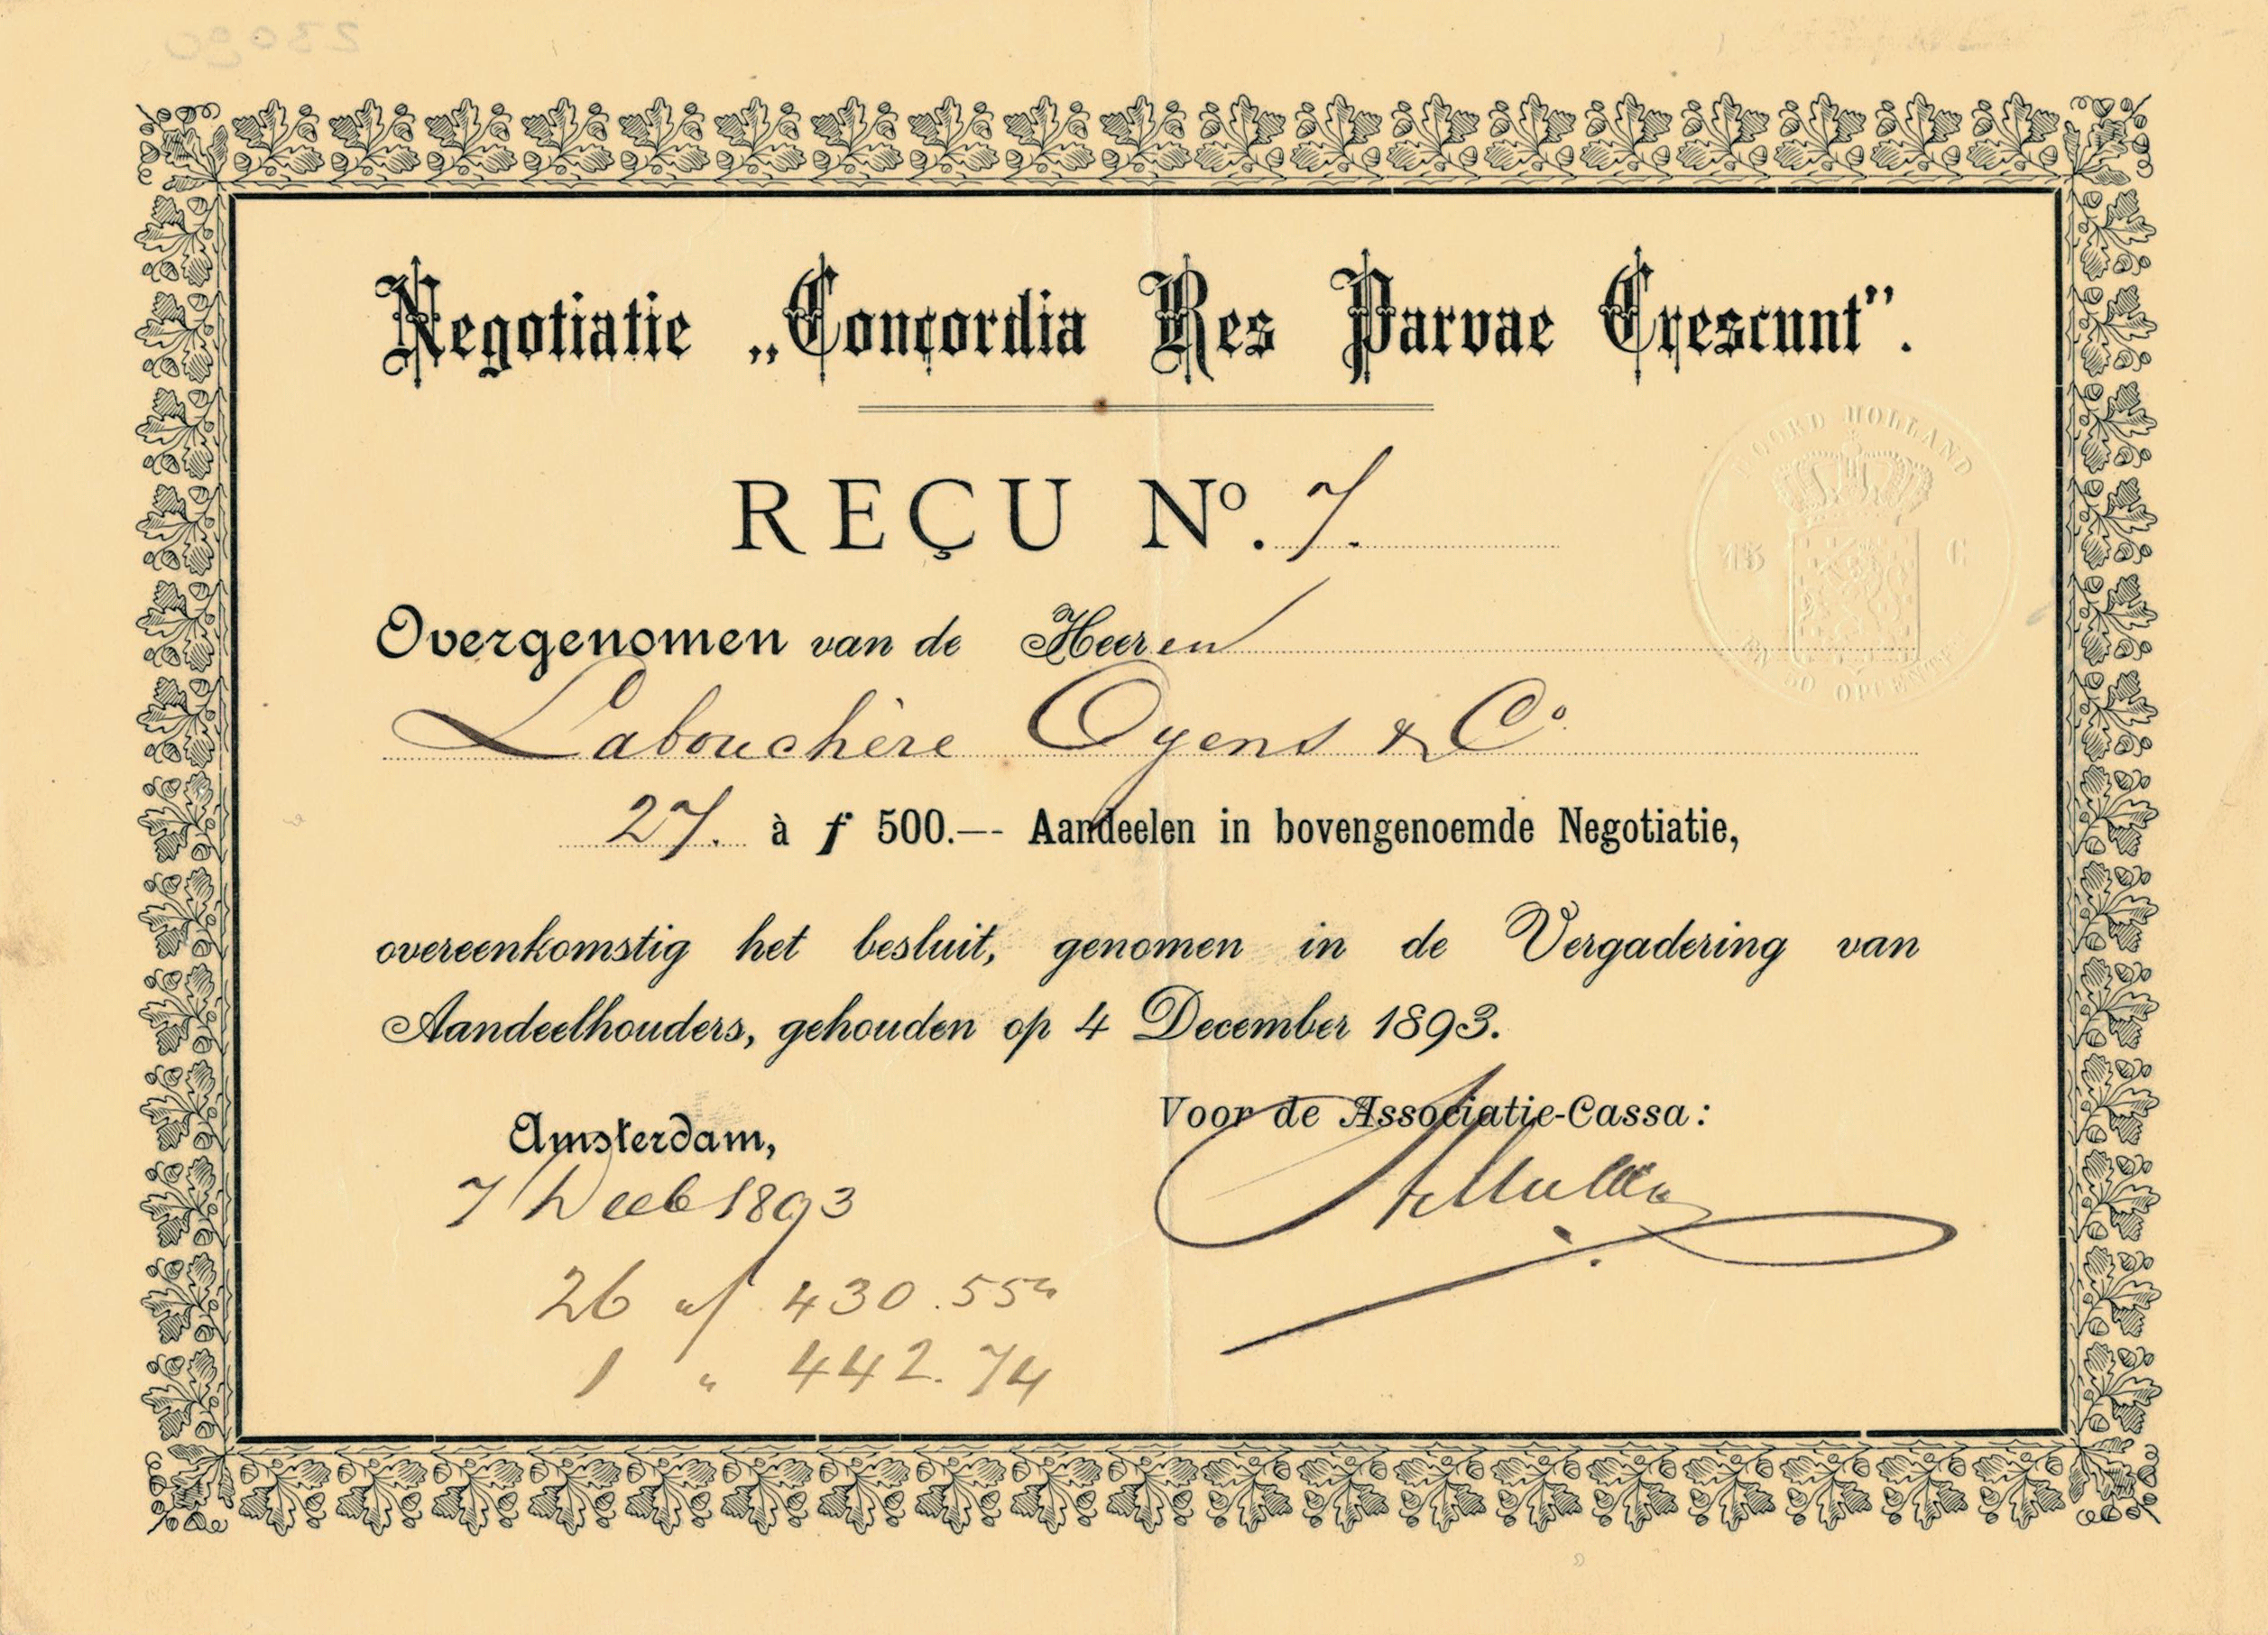 Negotiatie „Concordia Res Parvae Crescunt”.
REÇU Nº. 7.
Overgenomen van de Heeren
Labouchère Oyens & Cº
27. à ƒ 500.-- Aandeelen in bovengenoemde Negotiatie,
overeenkomstig het besluit, genomen in de Vergadering van
Aandeelhouders, gehouden op 4 December 1893.
Voor de Associatie-Cassa:
Amsterdam,
7 1893
26 430.55
1 " 442.74
NOORD HOLLAND
15 C
EN 50 OPCENTEN